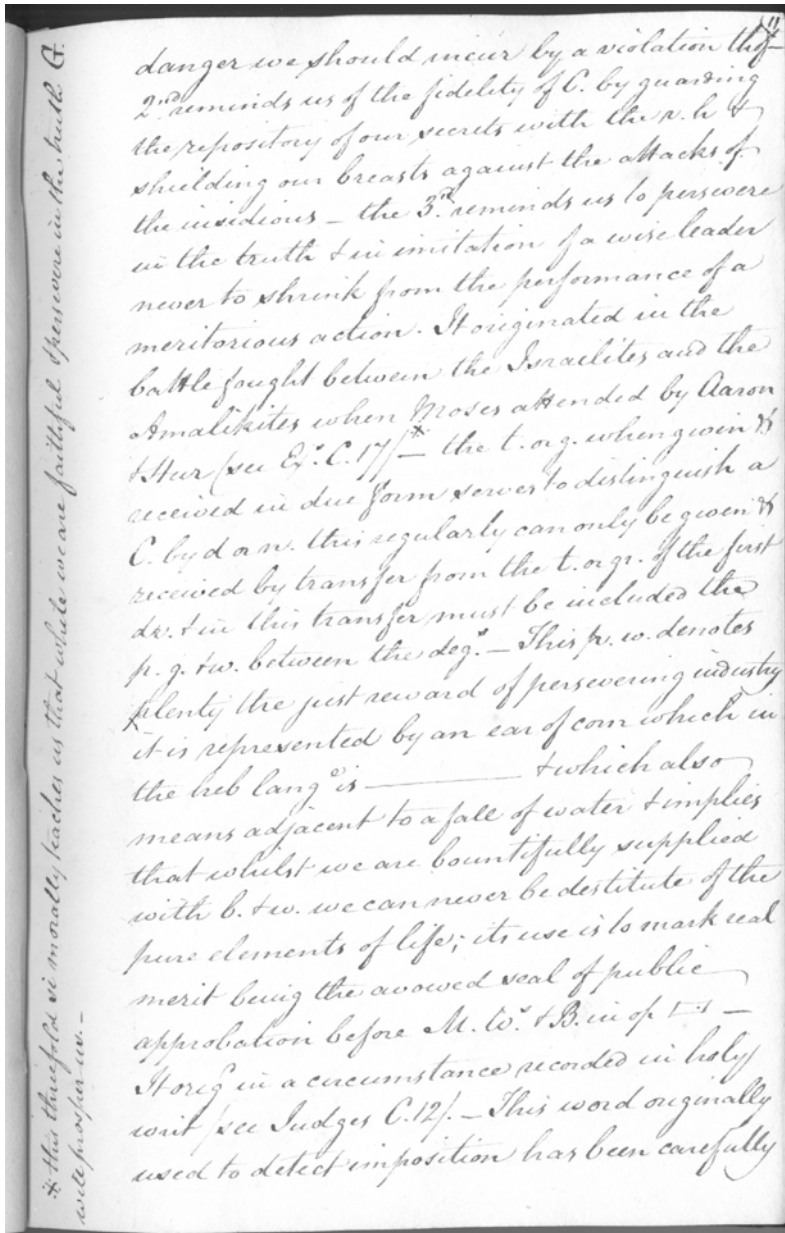 11
danger we should incur by a violation thof—
2nd reminds us of the fidelity of C. by guarding
the repository of our secrets with the r. h &
shielding our breasts against the attacks of
the insidious — the 3rd reminds us to persevere
in the truth & in imitation of a wise leader
never to shrink from the performance of a
meritorious action. It originated in the
battle fought between the Israelites and the
Amalikites when Moses attended by Aaron
& Hur (see Exs. C. 17)* — the t. or g. when given &
received in due form serves to distinguish a
C. by d or n. this regularly can only be given &
received by transfer from the t. or gr. of the first
de. & in this transfer must be included the
p. g. & w. between the degs. — This p. w. denotes
plenty the just reward of persevering industry
it is represented by an ear of corn which in
the heb lange is ——— & which also
means adjacent to a fall of water & implies
that whilst we are bountifully supplied
with b. & w. we can never be destitute of the
pure elements of life; its use is to mark real
merit being the avowed seal of public
approbation before M. Ws. & B. in op —
It orig in a circumstance recorded in holy
writ (see Judges C. 12). — This word originally
used to detect imposition has been carefully
* this threefold si morally teaches us that while we are faithful & persevere in the truth G.
will prosper us. —